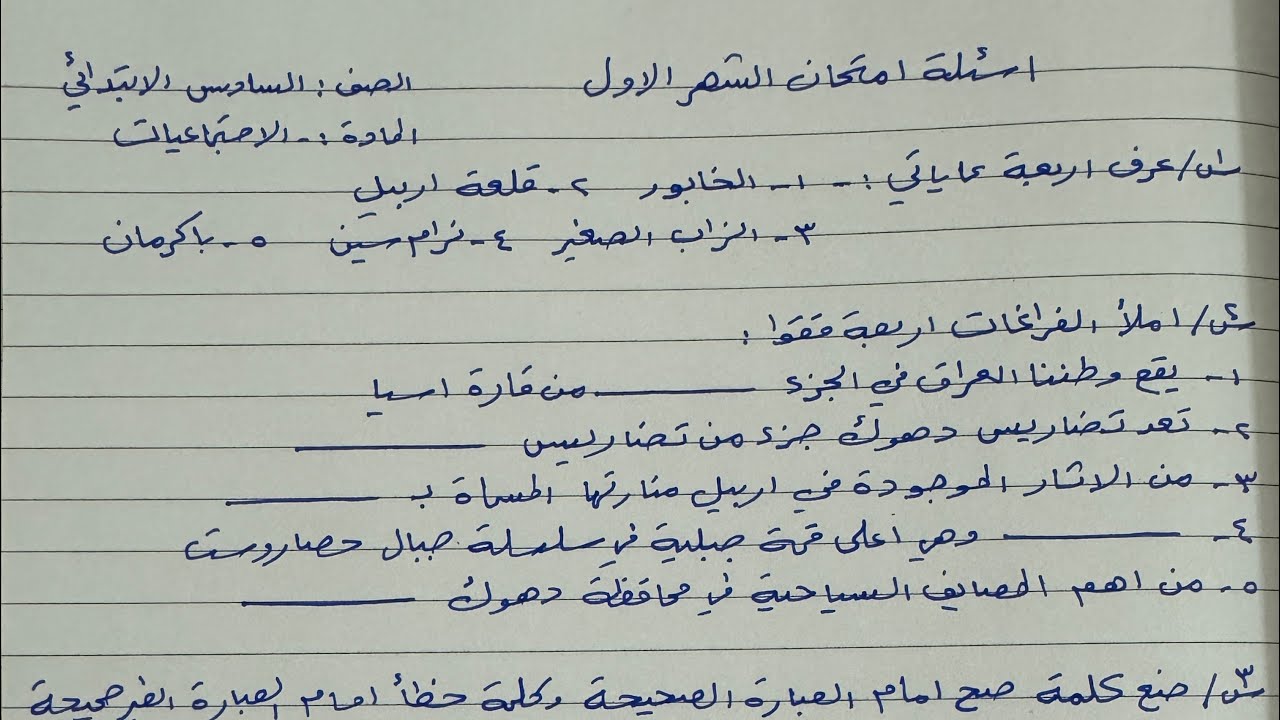 اسئلة امتحان الشهر الاول
الصف : السادس الابتدائي
المادة :- الاجتماعيات
س١/ عرف اربعة مماياتي :- ١- الخابور ٢- قلعة اربيل
٣- الزاب الصغير ٤- نرام سين ٥- باكرمان
س٢/ املأ الفراغات اربعة فقط :
١- يقع وطننا العراق في الجزء ــــــــ من قارة اسيا
٢- تعد تضاريس دهوك جزء من تضاريس ــــــــ
٣- من الاثار الموجودة في اربيل منارتها المسماة بـ ــــــــ
٤- ــــــــ وهي اعلى قمة جبلية في سلسلة جبال حصاروست
٥- من اهم المصايف السياحية في محافظة دهوك ــــــــ
س٣/ ضع كلمة صح امام العبارة الصحيحة وكلمة خطأ امام العبارة الغير صحيحة